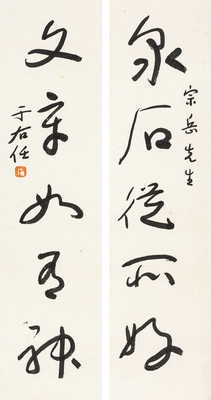 泉石從所好
宗岳先生
文章如有神
于右任